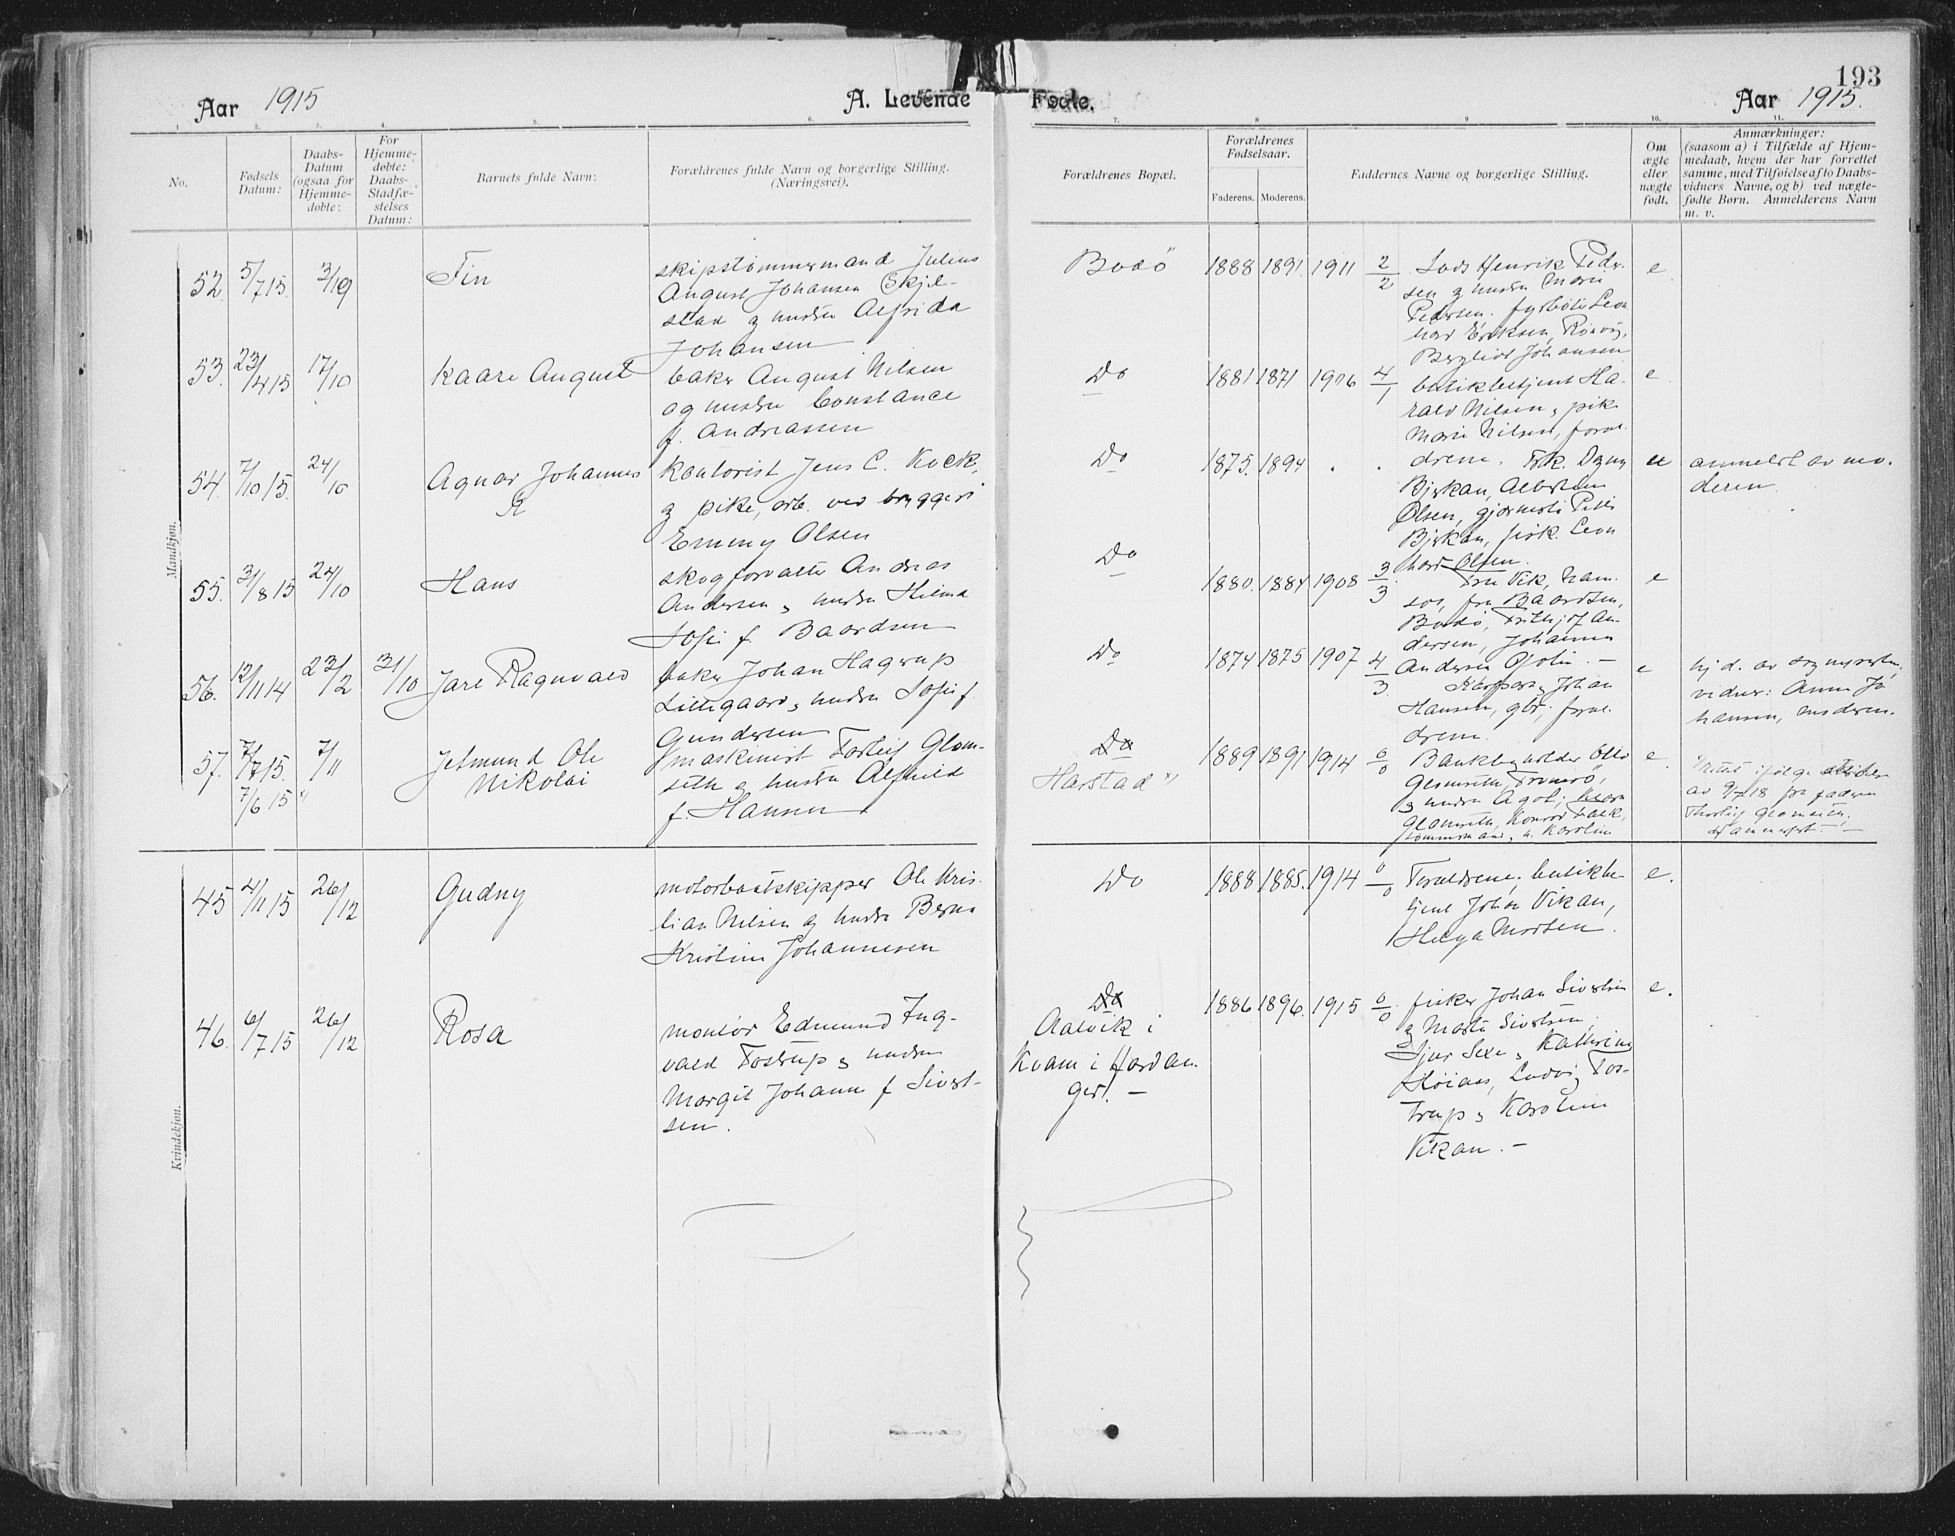 193
Aar 1915
A. Levende
Fødte.
Aar 1915.
1. 2. 3. 4. 5. 6. 7. 8. 9. 10. 11.
No.
Fødsels
Datum:
Daabs-
Datum
(ogsaa for
Hjemme-
døbte:
For
Hjemme-
døbte:
Daabs-
Stadfæ-
stelses
Datum:
Barnets fulde Navn:
Forældrenes fulde Navn og borgerlige Stilling.
(Næringsvei).
Forældrenes Bopæl.
Forældrenes
Fødselsaar.
Faderens. Moderens.
Faddernes Navne og borgerlige Stilling.
Om
ægte
eller
nægte
født.
Anmærkninger:
(saasom a) i Tilfælde af Hjem-
medaab, hvem der har forrettet
samme, med Tilføielse af to Daabs-
vidners Navne, og b) ved nægte-
fødte Børn. Anmelderens Navn
m. v.
Mandkjøn.
52. 5/7 15. 3/10 Fin
skipstømmermand Julius
August Johansen Skjel-
stad og hustru Alfrida
Johansen
Bodö 1888 1891. 1911 2/2
Lods Henrik Peder-
sen og hustru Marie
Pedersen. fyrbøter Leon
hard Eriksen, Rønvig,
Bergliot Johansen
e
53. 23/4 15 17/10 Kaare August
baker August Nilsen
og hustru Constance
f. Andreassen
Do 1881 1871 1906 4/1
butikbetjent Ha-
rald Nilsen, pike
Marie Nilsen, foræl-
drene.
e
54. 7/10 15. 24/10 Agnar Johannes
kontorist Jens C. Koch,
og pike, arb. ved bryggeri
Emmy Olsen
Do 1875. 1894 . .
Olsen, Peder
Bjskan, fisk. Leon
hard Olsen.
u
anmeldt av mo-
deren.
55. 31/8 15 24/10 Hans
skogforvalter Andreas
Andersen og hustru Hilma
Sofie f. Baardsen
Do 1880. 1884 1908 3/3
Fru Vik, Nam-
sos, fru Baardsen,
Bodø, Fridtjof An-
dersen, Johanna
Andersen Gjølin. -
e
56. 12/11 14 23/2 31/10 Jarl Ragnvald
baker Johan Hagerup
Lillegaard og hustru Sofie f.
Gundersen
Do 1874 1875 1907 4/3
Johan
Hansen, gbr., foræl-
drene.
e
hj. d. av
vidner: Anna Jo
hansen, moderen.
57. 7/7 15. 7/11 Jetmund Ole
Nikolai
7/6 15 x)
maskinist Torleif Glom-
seth og hustru Alfhild
f. Hansen
Do
Harstad x) 1889 1891 1914 0/0
Bankbokholder Otto
Glomseth, Tromsø,
og hustru Agot,
Glomseth, Konrad Falk,
tømmermand, Karoline
e.
x) rettet ifølge
av 9/7 18 fra faderen
Thorleif Glomseth.
Kvindekjøn.
45 4/11 15 26/12 Gudny
motorbaatskipper Ole Kris-
tian Nilsen og hustru Berna
Kristine Johannesen
Do 1888 1885. 1914 0/0
Forældrene, butikbe-
tjent Johan Vikan,
Helga Morsen.
e.
46. 6/7 15 26/12 Rosa
montør Edmund Ing-
vald Tostrup og hustru
Margit Johanne f. Sivert-
sen.
Do
Aalvik i
Kvam i Hardan-
ger. -
1886 1896. 1915 0/0
fisker Johan Sivertsen
og Marta Sivertsen,
Sjur Sexe, Kathrine
Høiaas, Ludvig Tos-
trup, Karoline
Vikan. -
e.